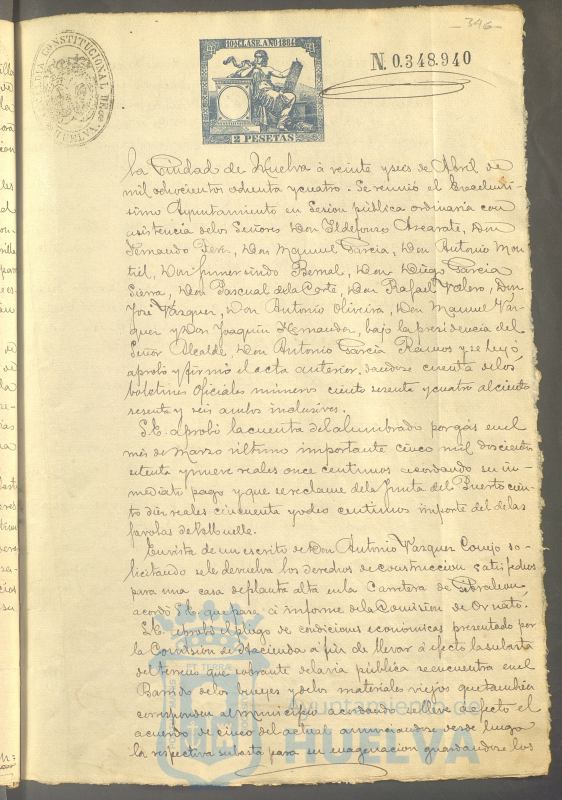 -346-
ALCALDIA CONSTITUCIONAL DE HUELVA
10ª CLASE. AÑO 1884
N. 0.348.940
2 PESETAS
la Ciudad de Huelva á veinte y seis de Abril de
mil ochocientos ochenta y cuatro. Se reunió el Excelentí-
simo Ayuntamiento en Sesion pública ordinaria con
asistencia de los Señores Don Ildefonso Azcarate, Don
Fernando Don Manuel Garcia, Don Antonio Mon-
tiel, Don Gumersindo Bernal, Don Diego Garcia
Sierra, Don Pascual de la Corte, Don Rafael Valero, Don
José Vazquez, Don Antonio Oliveira, Don Manuel Váz-
quez y Don Joaquin Hernandez, bajo la presidencia del
Señor Alcalde, Don Antonio Garcia Ramos y se leyó,
aprobó y firmó el acta anterior, dandose cuenta de los
boletines oficiales números ciento sesenta y cuatro al ciento
sesenta y seis ambos inclusives.
S.E. aprobó la cuenta del alumbrado por gás en el
més de Marzo último importante cinco mil doscientos
setenta y nueve reales once centimos acordando su in-
mediato pago y que se reclame de la Junta del Puerto cien-
to diez reales cincuenta y odeo centimos importe del de las
farolas del Muelle.
En vista de un escrito de Don Antonio Vázquez Conejo so-
licitando se le devuelva los derechos de construccion satisfechos
para una casa de planta alta en la Carretera de Gibraleon,
acordó S.E. que pase á informe de la Comision de Ornato.
S.E. aprobó el pliego de condiciones económicas presentado por
la Comision de Hacienda á fin de llevar á efecto la subasta
del terreno que sobrante de la via pública se encuentra en el
Barrido de los bueyes y de los materiales viejos que tambien
corresponden al municipio acordando se lleve á efecto el
acuerdo de cinco del actual anunciandose desde luego
la respectiva subasta para su enagenacion guardandose los
Ayuntamiento de
HUELVA